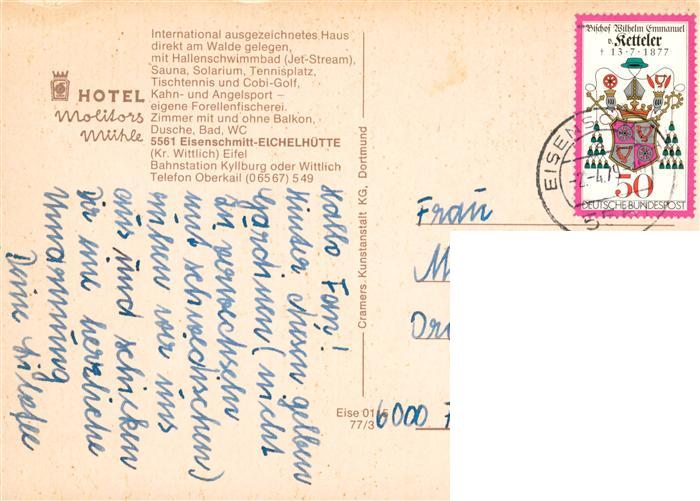 International ausgezeichnetes Haus
direkt am Walde gelegen,
mit Hallenschwimmbad (Jet-Stream),
Sauna, Solarium, Tennisplatz,
Tischtennis und Cobi-Golf,
Kahn- und Angelsport –
eigene Forellenfischerei.
Zimmer mit und ohne Balkon,
Dusche, Bad, WC
5561 Eisenschmitt-EICHELHÜTTE
(Kr. Wittlich) Eifel
Bahnstation Kyllburg oder Wittlich
Telefon Oberkail (06567) 549
HOTEL
Molitors
Mühle
Hallo
hinter diesen gelben
Gardinen (nicht
zu verwechseln
mit schwedischen)
ruhen wir uns
aus und schicken
Dir eine herzliche
Umarmung
Deine
Cramers Kunstanstalt KG, Dortmund
Eise 01 5
77/3
Bischof Wilhelm Emmanuel
v. Ketteler
† 13·7·1877
50
DEUTSCHE BUNDESPOST
EISENSC
-2.-4.79
Frau
M
6000